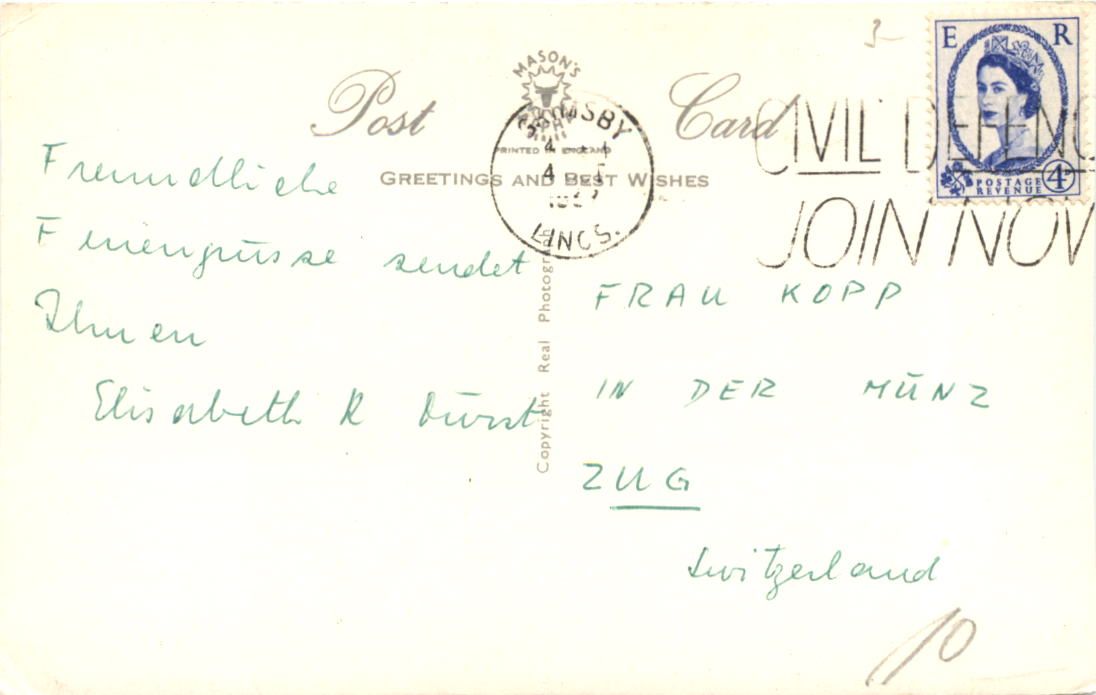 3-
E R
POSTAGE
REVENUE
4D
MASON'S
Post Card
GRIMSBY
LINCS.
PRINTED IN ENGLAND
GREETINGS AND BEST WISHES
CIVIL DEFENC
JOIN NOW
Copyright Real Photograph
Freundliche
Feriengrüsse sendet
Ihnen
Elisabeth R Dürst
FRAU KOPP
IN DER MÜNZ
ZUG
Switzerland
10